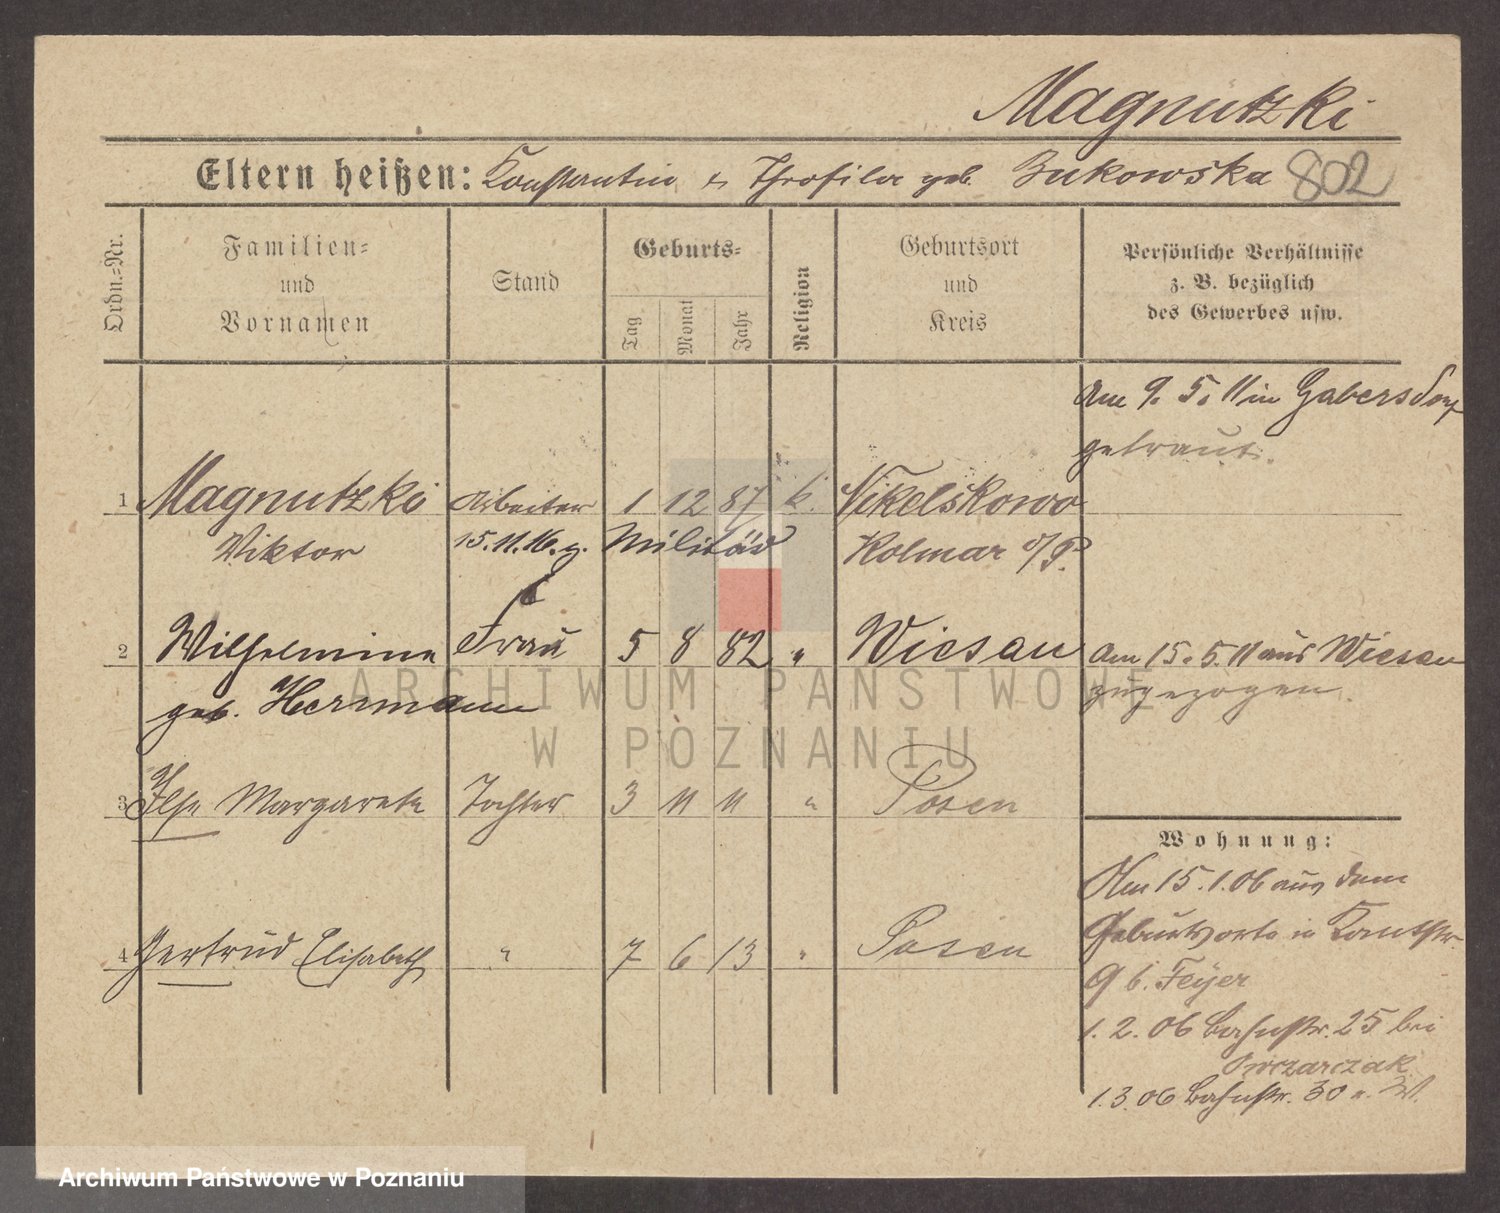 Magnutzki
Eltern heißen: Konstantin u. Theofila geb. Bukowska 802
Ordn.=Nr.
Familien=
und
Vornamen
Stand
Geburts=
Tag
Monat
Jahr
Religion
Geburtsort
und
Kreis
Persönliche Verhältnisse
z. B. bezüglich
des Gewerbes usw.
Am 9. 5. 11 in Gabersdorf
getraut.
1 Magnutzki Arbeiter 1 12 87 k. Nikelskowo
Viktor 15.11.16. z. Militär Kolmar o/P.
2 Wilhelmine Frau 5 8 82 " Wiesau Am 15. 5. 11 aus Wiesau
geb. Herrmann zugezogen.
3 Ilse Margarete Tochter 3 11 11 " Posen
Wohnung:
Am 15.1.06 aus dem
Geburtsorte in Kantstr.
4 Gertrud Elisabeth " 7 6 13 " Posen
9 b. Feyer
1.2.06 Bahnstr. 25 bei
Owczarczak
1.3.06 Bahnstr. 30 
ARCHIWUM PAŃSTWOWE
W POZNANIU
Archiwum Państwowe w Poznaniu